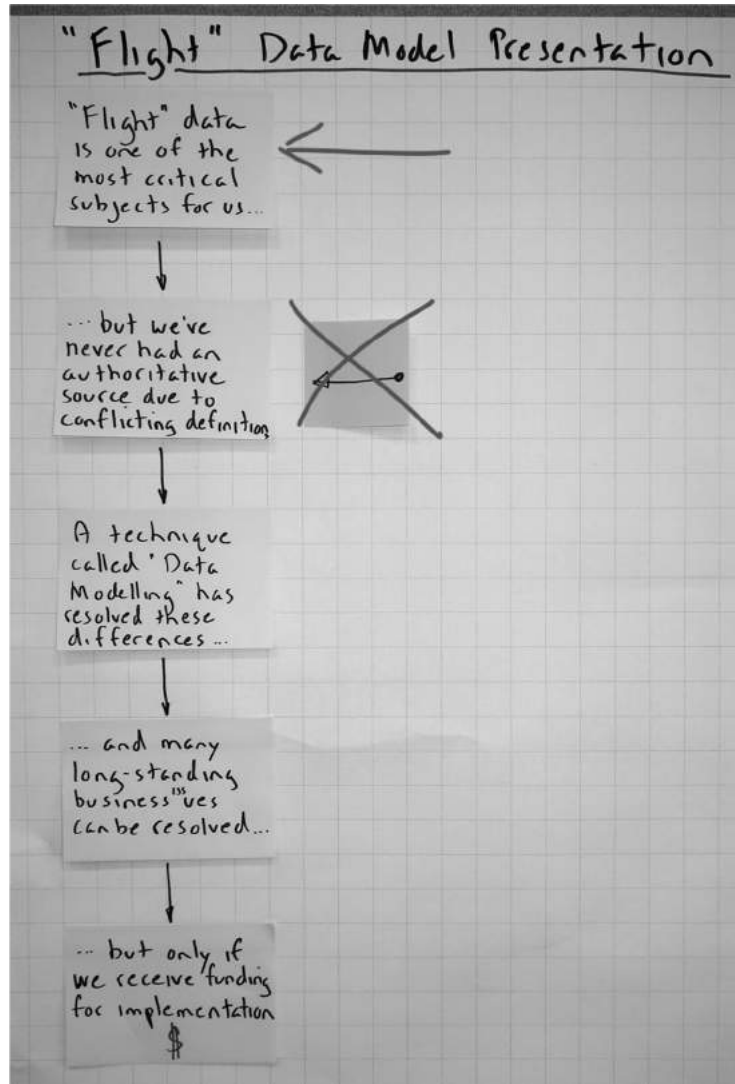 "Flight" Data Model Presentation
"Flight" data
is one of the
most critical
subjects for us...
... but we've
never had an
authoritative
source due to
conflicting definition
A technique
called "Data
Modelling" has
resolved these
differences...
... and many
long-standing
business issues
can be resolved...
... but only if
we receive funding
for implementation
$